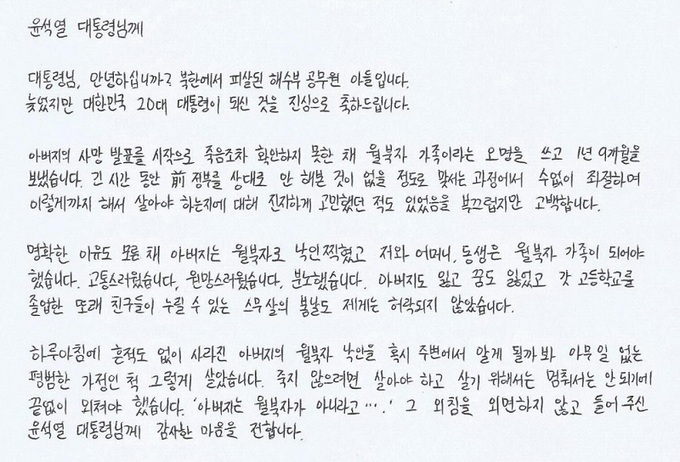 윤석열 대통령님께
대통령님, 안녕하십니까? 북한에서 피살된 해수부 공무원 아들입니다.
늦었지만 대한민국 20대 대통령이 되신 것을 진심으로 축하드립니다.
아버지의 사망 발표를 시작으로 죽음조차 확인하지 못한 채 월북자 가족이라는 오명을 쓰고 1년 9개월을
보냈습니다. 긴 시간 동안 前 정부를 상대로 안 해본 것이 없을 정도로 맞서는 과정에서 수없이 좌절하여
이렇게까지 해서 살아야 하는지에 대해 진지하게 고민했던 적도 있었음을 부끄럽지만 고백합니다.
명확한 이유도 모른 채 아버지는 월북자로 낙인찍혔고 저와 어머니, 동생은 월북자 가족이 되어야
했습니다. 고통스러웠습니다, 원망스러웠습니다, 분노했습니다. 아버지도 잃고 꿈도 잃었고 갓 고등학교를
졸업한 또래 친구들이 누릴 수 있는 스무살의 봄날도 제게는 허락되지 않았습니다.
하루아침에 흔적도 없이 사라진 아버지의 월북자 낙인을 혹시 주변에서 알게 될까봐 아무 일 없는
평범한 가정인 척 그렇게 살았습니다. 죽지 않으려면 살아야 하고 살기 위해서는 멈춰서는 안 되기에
끝없이 외쳐야 했습니다. '아버지는 월북자가 아니라고 ….' 그 외침을 외면하지 않고 들어 주신
윤석열 대통령님께 감사한 마음을 전합니다.